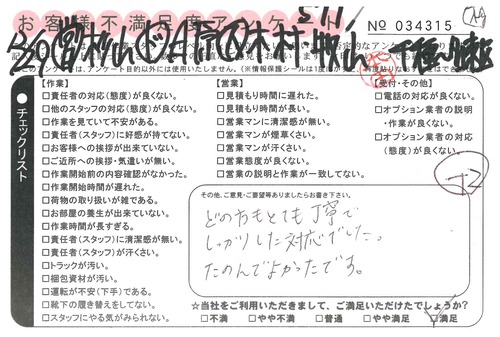 お客様不満足度アンケート
No 034315
【作業】
□責任者の対応(態度)が良くない。
□他のスタッフの対応(態度)が良くない。
□作業を見ていて不安がある。
□責任者(スタッフ)に好感が持てない。
□お客様への挨拶が出来ていない。
□ご近所への挨拶・気遣いが無い。
□作業開始前の内容確認がなかった。
□作業開始時間が遅れた。
□荷物の取り扱いが雑である。
□お部屋の養生が出来ていない。
□作業時間が長すぎる。
□責任者(スタッフ)に清潔感が無い。
□責任者(スタッフ)が汗くさい。
□トラックが汚い。
□梱包資材が汚い。
□運転が不安(下手)である。
□靴下の履き替えをしてない。
□スタッフにやる気がみられない。
チェックリスト
【営業】
□見積もり時間に遅れた。
□見積もり時間が長い。
□営業マンに清潔感が無い。
□営業マンが煙草くさい。
□営業マンが汗くさい。
□営業態度が良くない。
□営業の説明と作業が一致してない。
【受付・その他】
□電話の対応が良くない。
□オプション業者の説明
・作業が良くない。
□オプション業者の対応
(態度)が良くない。
その他、ご意見・ご要望等ありましたらお書き下さい。
どのかたもとても丁寧で
しっかりした対応でした。
たのんでよかったです。
☆当社をご利用いただきまして、ご満足いただけたでしょうか?
□不満 □やや不満 □普通 □やや満足 □満足